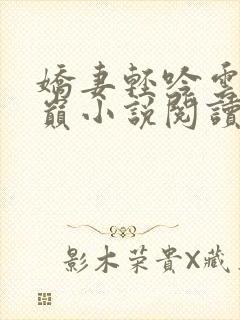 嬌妻輕吟雲
巔小說閱讀
影木荣貴X藏